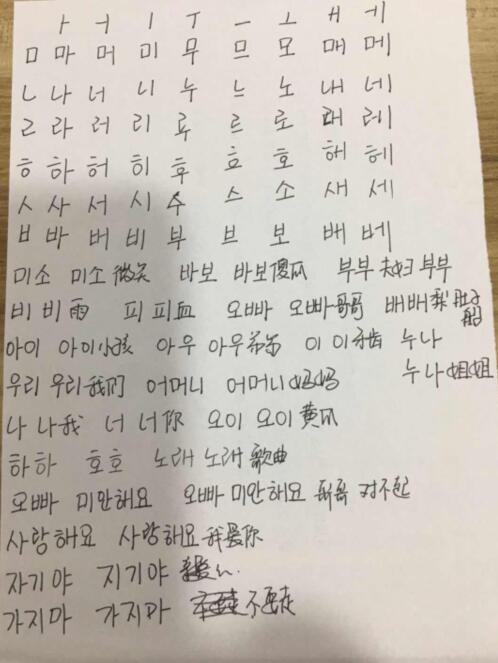 ㅏ ㅓ ㅣ ㅜ ㅡ ㅗ ㅐ ㅔ
ㅁ 마 머 미 무 므 모 매 메
ㄴ 나 너 니 누 느 노 내 네
ㄹ 라 러 리 루 르 로 래 레
ㅎ 하 허 히 후 흐 호 해 헤
ㅅ 사 서 시 수 스 소 새 세
ㅂ 바 버 비 부 브 보 배 베
미소 미소 微笑 바보 바보傻瓜 부부 夫妇 부부
비 비 雨 피 피 血 오빠 오빠哥哥 배 배 梨 肚子 船
아이 아이小孩 아우 아우弟弟 이 이 牙齿 누나
우리 우리我们 어머니 어머니 妈妈 누나 姐姐
나 나我 너 너你 오이 오이 黄瓜
하하 호호 노래 노래 歌曲
오빠 미안해요 오빠 미안해요 哥哥 对不起
사랑해요 사랑해요 我爱你
자기야 지기야
가지마 가지마 不要走